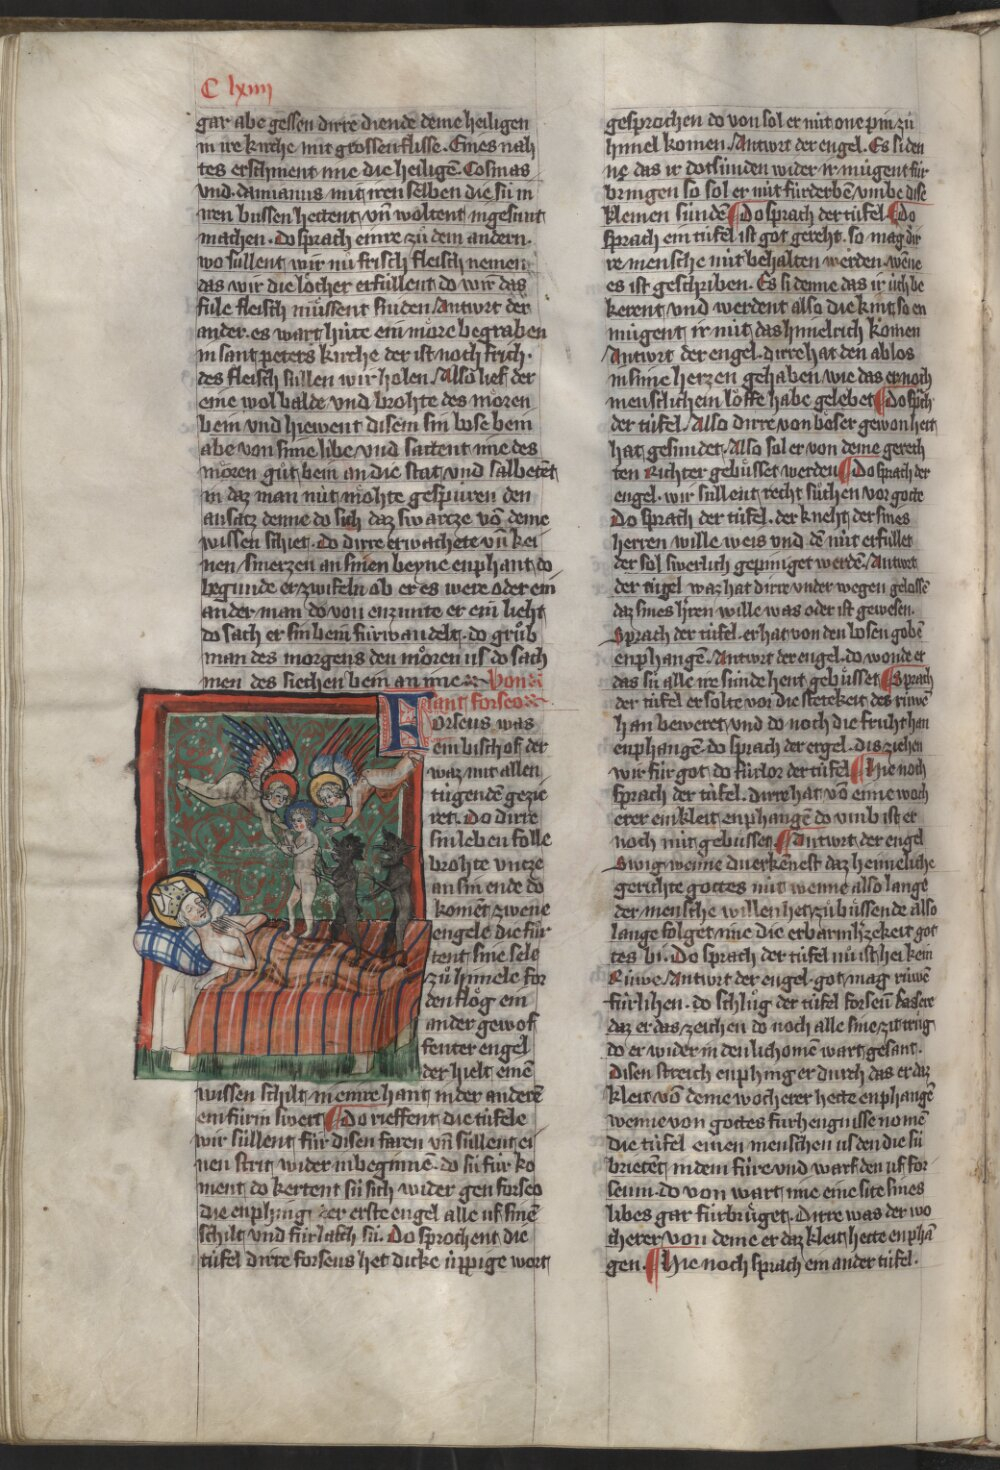 C lxiiij
gar abe gessen dirre diende deme heiligen
in ire kirche mit grossen flisse. Eines nah
tes erschinent ime die heiligē Cosmas
vnd. damianus mit iren selben die sü in
iren bussen hettent vn̄ woltent in gesunt
machen. do sprach einre zů dem andern.
wo süllent wir nu frisch fleisch nemen
das wir die löcher erfüllent do wir das
fule fleisch müssent sniden Antwrt der
ander. es wart hüte ein möre begraben
in sant peters kirche der ist noch frich.
des fleisch süllen wir holen. Also lief der
eine wol balde vnd brohte des mören
bein vnd hiewent disem sin bose bein
abe von sime libe vnd sattent ime des
mören gůt bein an die stat vnd salbetēt
in daz man nüt möhte gespüren den
ansatz denne do sich daz swartze vō deme
wissen schiet. do dirre erwachete vn̄ kei
nen smerzen an sinen beyne enphant do
begunde er zwifeln ob er es were oder ein
ander man do von enzunte er ein lieht
do sach er sin bein fürwandelt. do grůb
man des morgens den mören us do sach
men des siechen bein an ime Von
sant forseo
Forseus was
ein bischof der
waz mit allen
tugendē gezie
ret. Do dirre
sin leben folle
brohte vntze
an sin ende do
komēt zwene
engele die für
tent sine sele
zů himele for
den flög ein
ander gewof
fenter engel
der hielt einē
wissen schilt in einre hant in der anderē
ein fürin swert Do rieffent die tüfele
wir süllent für disen faren vn̄ süllent ei
nen strit wider in beginnē. do sü für ko
ment do kertent sü sich wider gen forseo
die enphing der erste engel alle uf sinē
schilt vnd fürlasch sü. Do sprochent die
tüfel dirre forseus het dicke üppige wort
gesprochen do von sol er nüt one pin zů
himel komen. Antwrt der engel. Es si den
ne das ir dotsünden wider ir mügent für
bringen so sol er nüt fürderbē vmbe dise
kleinen sündē Do sprach der tüfel Do
sprach ein tüfel ist got gereht. so mag dir
re mensche nüt behalten werden. wene
es ist geschriben. Es si denne das ir üch be
kerent vnd werdent also die kint so en
mügent ir nüt das himelrich komen
Antwrt der engel. dirre hat den ablos
in sime herzen gehaben wie das er noch
menschlichein löffe habe gelebet Do sp̄ch
der tüfel. Also dirre von böser gewonheit
hat gesundet. Also sol er von deme gerech
ten Richter gebüsset werden Do sprach der
engel. wir süllent recht süchen vor gotte
Do sprach der tüfel. der kneht der sines
herren wille weis vnd dē nüt erfüllet
der sol swerlich gepiniget werdē. Antwrt
der engel waz hat dirre vnder wegen gelossē
daz sines h̄ren wille was oder ist gewesen.
Sprach der tüfel. er hat von den bosen gobē
enphangē. Antwrt der engel. do wonde er
das sü alle ire sünde hent gebüsset Sprach
der tüfel er solte vor die sterckeit des rüwē
han bewert vnd do noch die fruht han
enphangē. do sprach der engel. dis ziehen
wir für got do fürlor der tüfel Hie noch
sprach der tüfel. dirre hat vō eime woch
erer ein kleit enphangē do vmb ist er
noch nüt gebüsset Antwrt der engel
Swig wenne du erkēnest daz heimeliche
gerihte gottes nüt wenne also lange
der mensche willen het zů büssende also
lange folget ime die erbarmhzekeit got
tes bi. Do sprach der tüfel nů ist hei kein
Rüwe. Antwrt der engel. got mag rüwē
fürlihen. do schlůg der tüfel forseū so sere
daz er das zeichen do noch alle sine zit trůg
do er wider in den lichomē wart gesant.
Disen streich enphing er durch das er daz
kleit vō deme wocherer hette enphangē
wenne von gottes fürhengnisse nomē
die tüfel einen menschen us den die sü
brietēt in dem füre vnd warf den uf for
seum. do von wart ime eine site sines
libes gar fürbrüget. Dirre was der wo
cherer von deme er daz kleit hette enphā
gen. Hie noch sprach ein ander tüfel.